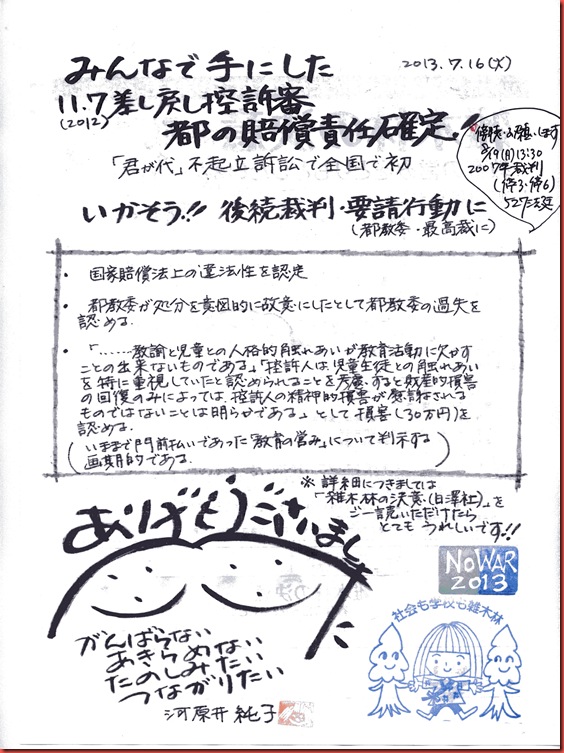 みんなで手にした
2013.7.16(火)
11.7差し戻し控訴審
(2012)
都の賠償責任確定!!
「君が代」不起立訴訟で全国で初
傍聴お願いします
8/19(月)13:30
2007年裁判
(停3・停6)
527法廷
いかそう!! 後続裁判・要請行動に
(都教委・最高裁に)
・ 国家賠償法上の違法性を認定
・ 都教委が処分を意図的に故意にしたとして都教委の過失を
認める.
・ 「……教諭と児童との人格的触れあいが教育活動に欠かす
ことの出来ないものである」「控訴人は、児童生徒との触れあい
を特に重視していたと認められることを考慮すると財産的損害
の回復のみによっては、控訴人の精神的損害が慰謝される
ものではないことは明らかである」として損害(30万円)を
認める.
(いままで門前払いであった「教育の営み」について判示する
画期的である.)
※ 詳細につきましては
「雑木林の決意(白澤社)」を
ご一読いただけたら
とても うれしいです!!
ありがとうございました
がんばらない
あきらめない
たのしみたい
つながりたい
河原井 純子
NO WAR
2013
社会も学校も雑木林